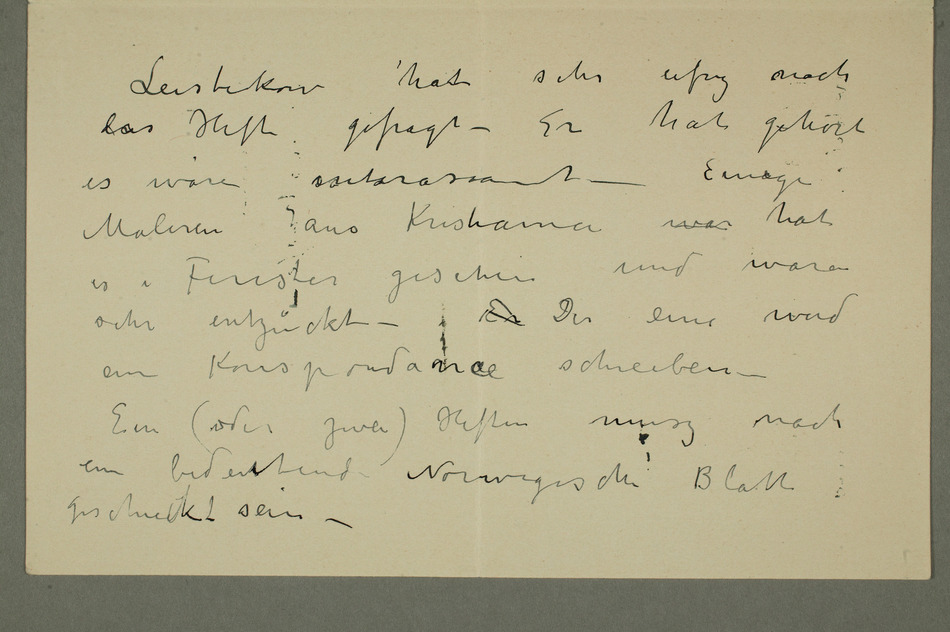 Leistekow hat sehr eifrig nach
das Heft gefragt – Er hat gehört
es wäre – Einige
Maleren aus Kristiania war hat
es i Fenster gesehen und waren
sehr entzückt – Er Der eine wird
ein Korrspondance schreiben –
Ein (oder zwei) Heften musz nach
ein bedeutende Norwegische Blatt
geschickt sein –